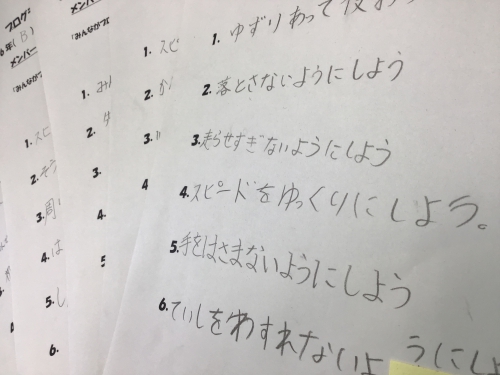 プログ
6年(B)
メンバー
「みんながプ
1.スピ
2.そう
3.周
4.は
5.し
6.
メンバー
「みんながプ
1.み
2.
3.
4.
5
1.スピ
2.か
3.い
4
1.ゆずりあって役わ
2.落とさないようにしよう
3.走らせすぎないようにしよう
4.スピードをゆっくりにしよう。
5.手をはさまないようにしよう
6.ていしをわすれないよ うにしよ